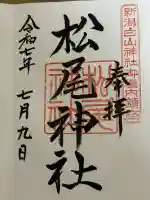 新潟白山神社御境内鎮座
奉拝
松尾神社
令和七年 七月九日